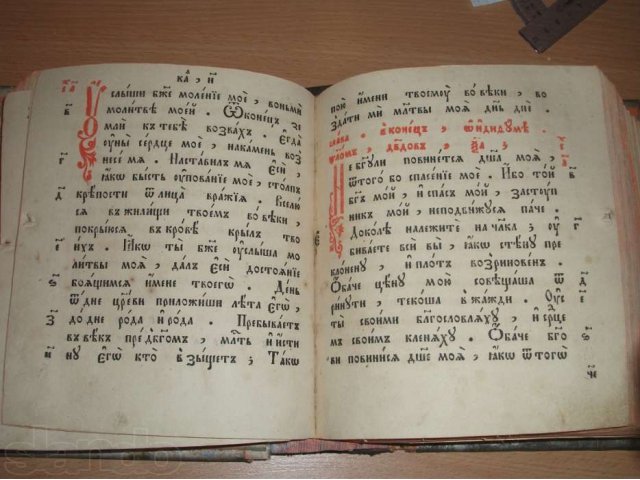 ка҃ , н҃
Оуслыши бж҃е моление моѐ , воньми
молитвѣ моей . Ѿ конецъ зе
мли къ тебѣ возвах . Єгда
оуны сердце мое , на камень воз
несе мѧ . Наставил мѧ єси ,
ꙗко бысть оупование мое , столпъ
крѣпости ѿ лица вражїѧ . Вселю
сѧ въ жилищи твоем во вѣки ,
покрыюсѧ въ кровѣ крыл тво
их . Ꙗко ты бж҃е оуслыша мо
литвы моѧ , дал єси достоѧнїе
боѧщимсѧ имене твоегѡ . День
ѿ дне цреви приложиши лѣта єгѡ ,
до дне рода и рода . Пребываетъ
въ вѣкъ пред бг҃ом , млⷭ҇ть и исти
ну єгѡ кто взыщетъ ; Такѡ
пою имени твоемоу во вѣки , во
здати ми мл҃твы моѧ дн҃ь ѿ дн҃е .
слава . в конецъ , ѡ идидꙋме
ѱалом , дв҃дов , ѯ҃а ;
Не бг҃ꙋ ли повинетсѧ дш҃а моѧ ,
ѿ того бо спасение мое . Ибо той
бг҃ъ мой , и спас мой , застоуп
ник мой , неподвижꙋсѧ паче .
Доколе належите на чл҃ка ; оу
биваете вси вы , ꙗкѡ стѣнꙋ пре
клоненꙋ , и плот возриновен .
Ѻбаче ценꙋ мою совѣщаша ѿ
ринꙋти , текоша в жажди . Оусе
ты своими благословлѧхꙋ , и срⷣце
мъ своим кленѧхꙋ . Ѻбаче бг҃о
ви повинисѧ дш҃е моѧ , ꙗкѡ ѿ тогѡ